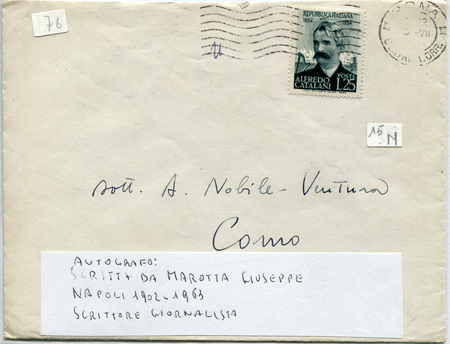 76
REPUBBLICA ITALIANA
1854 1954
ALFREDO CATALANI
POSTE
L.25
ROMA
15
N
dott. A. Nobile-Ventura
Como
AUTOGRAFO:
SCRITTA DA MAROTTA GIUSEPPE
NAPOLI 1902-1963
SCRITTORE GIORNALISTA